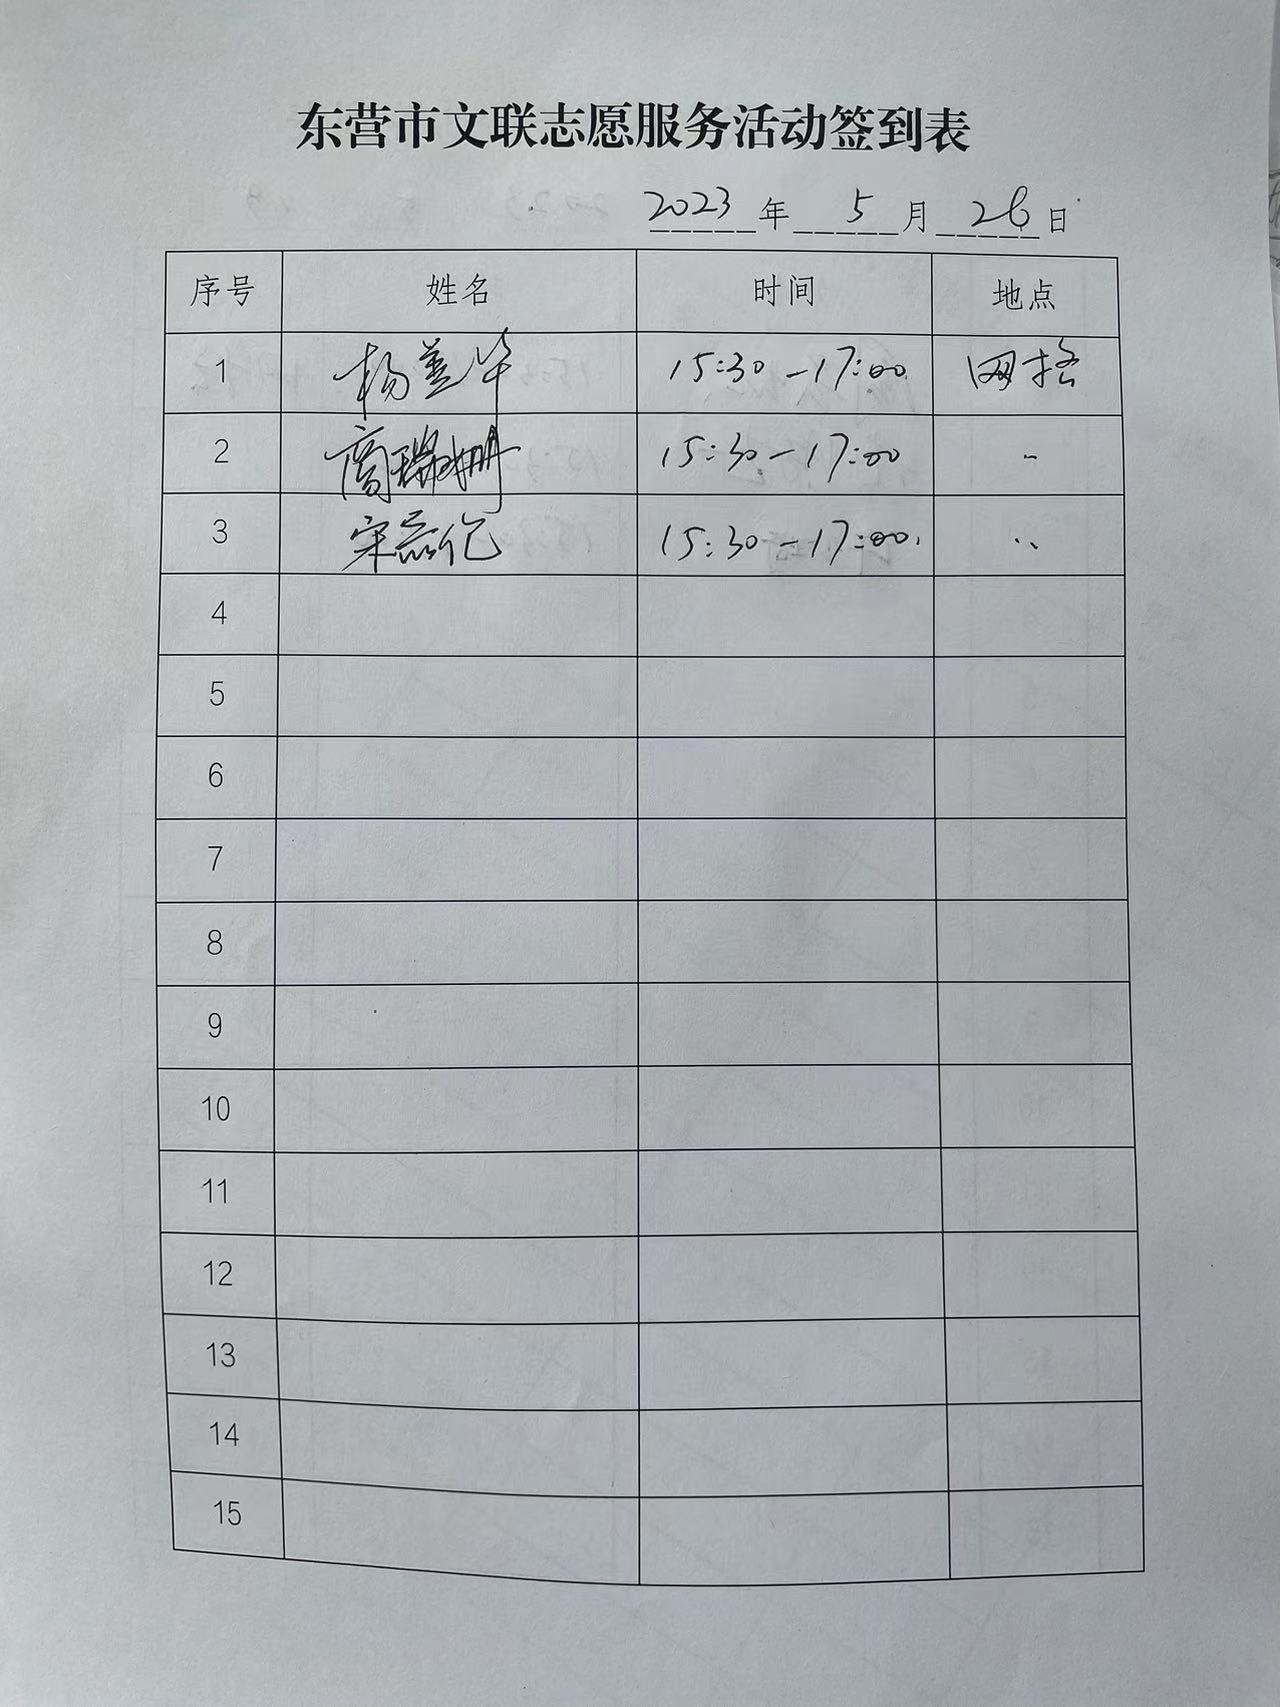 东营市文联志愿服务活动签到表
2023年 5月 26日
序号 姓名 时间 地点
1 杨益华 15:30-17:00 网格
2 商瑞珊 15:30-17:00 〃
3 宋 15:30-17:00 〃
4
5
6
7
8
9
10
11
12
13
14
15